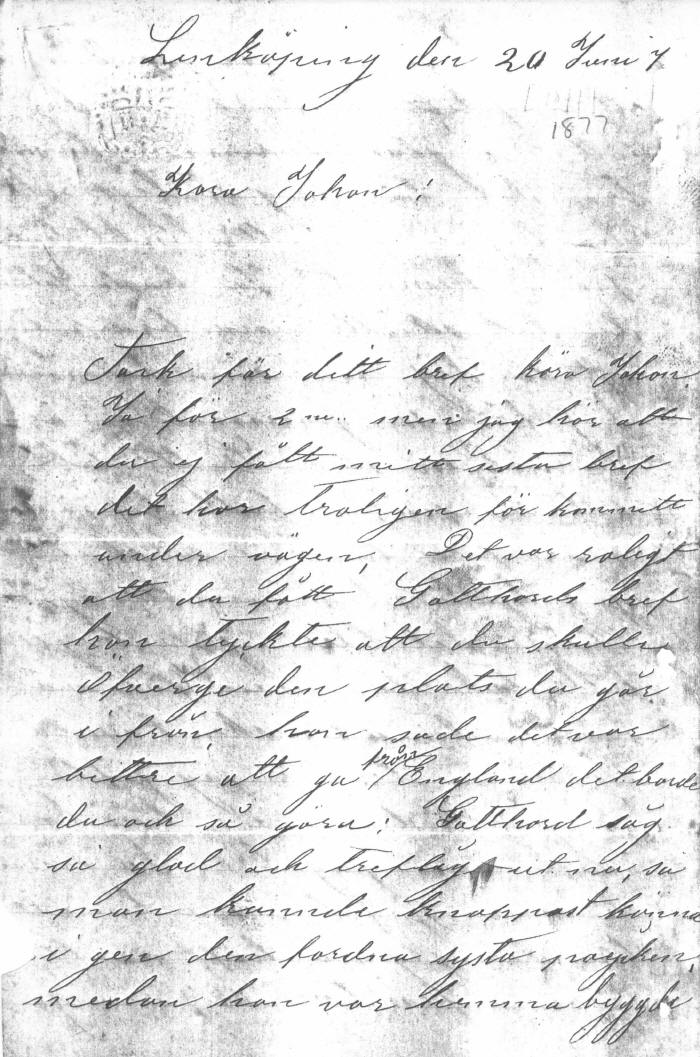 Linköping den 20 Juni 7
1877
Kära Johan!
Tack för ditt bref kära Johan
Ja för 2 men jag hör att
du ej fått mitt sista bref
det har troligen för kommitt
under vägen, Det var roligt
att du fått Gotthards bref
han tyckte att du skulle
öfverge den plats du går
i från, han sade det var
bettre att ga från England det borde
du och så göra: Gotthard såg
så glad och treflig ut nu, så
man kunnde knappast känna
i gen den fordna pojken,
medan han var hemma byggde